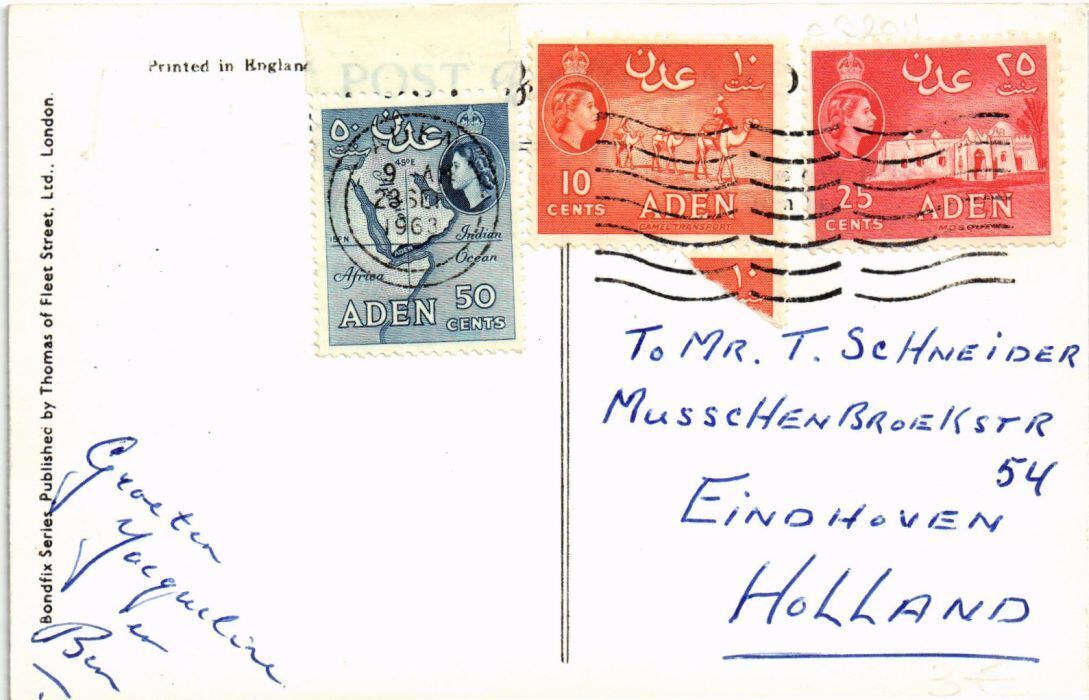 Printed in England
POST
Bondfix Series, Published by Thomas of Fleet Street, Ltd., London.
٥٠ عدن
سنت
45°E
Indian
Ocean
Africa
ADEN 50
CENTS
9 - AM
SEP
1963
عدن ١٠
سنت
10
CENTS ADEN
CAMEL TRANSPORT
١٠
عدن ٢٥
سنت
25
CENTS ADEN
MOSQUE
To MR. T. SCHNEiDER
MUSSCHENBROEKSTR
54
EiNDHOVEN
HOLLAND
Groeten
Yacqueline
en
Ben